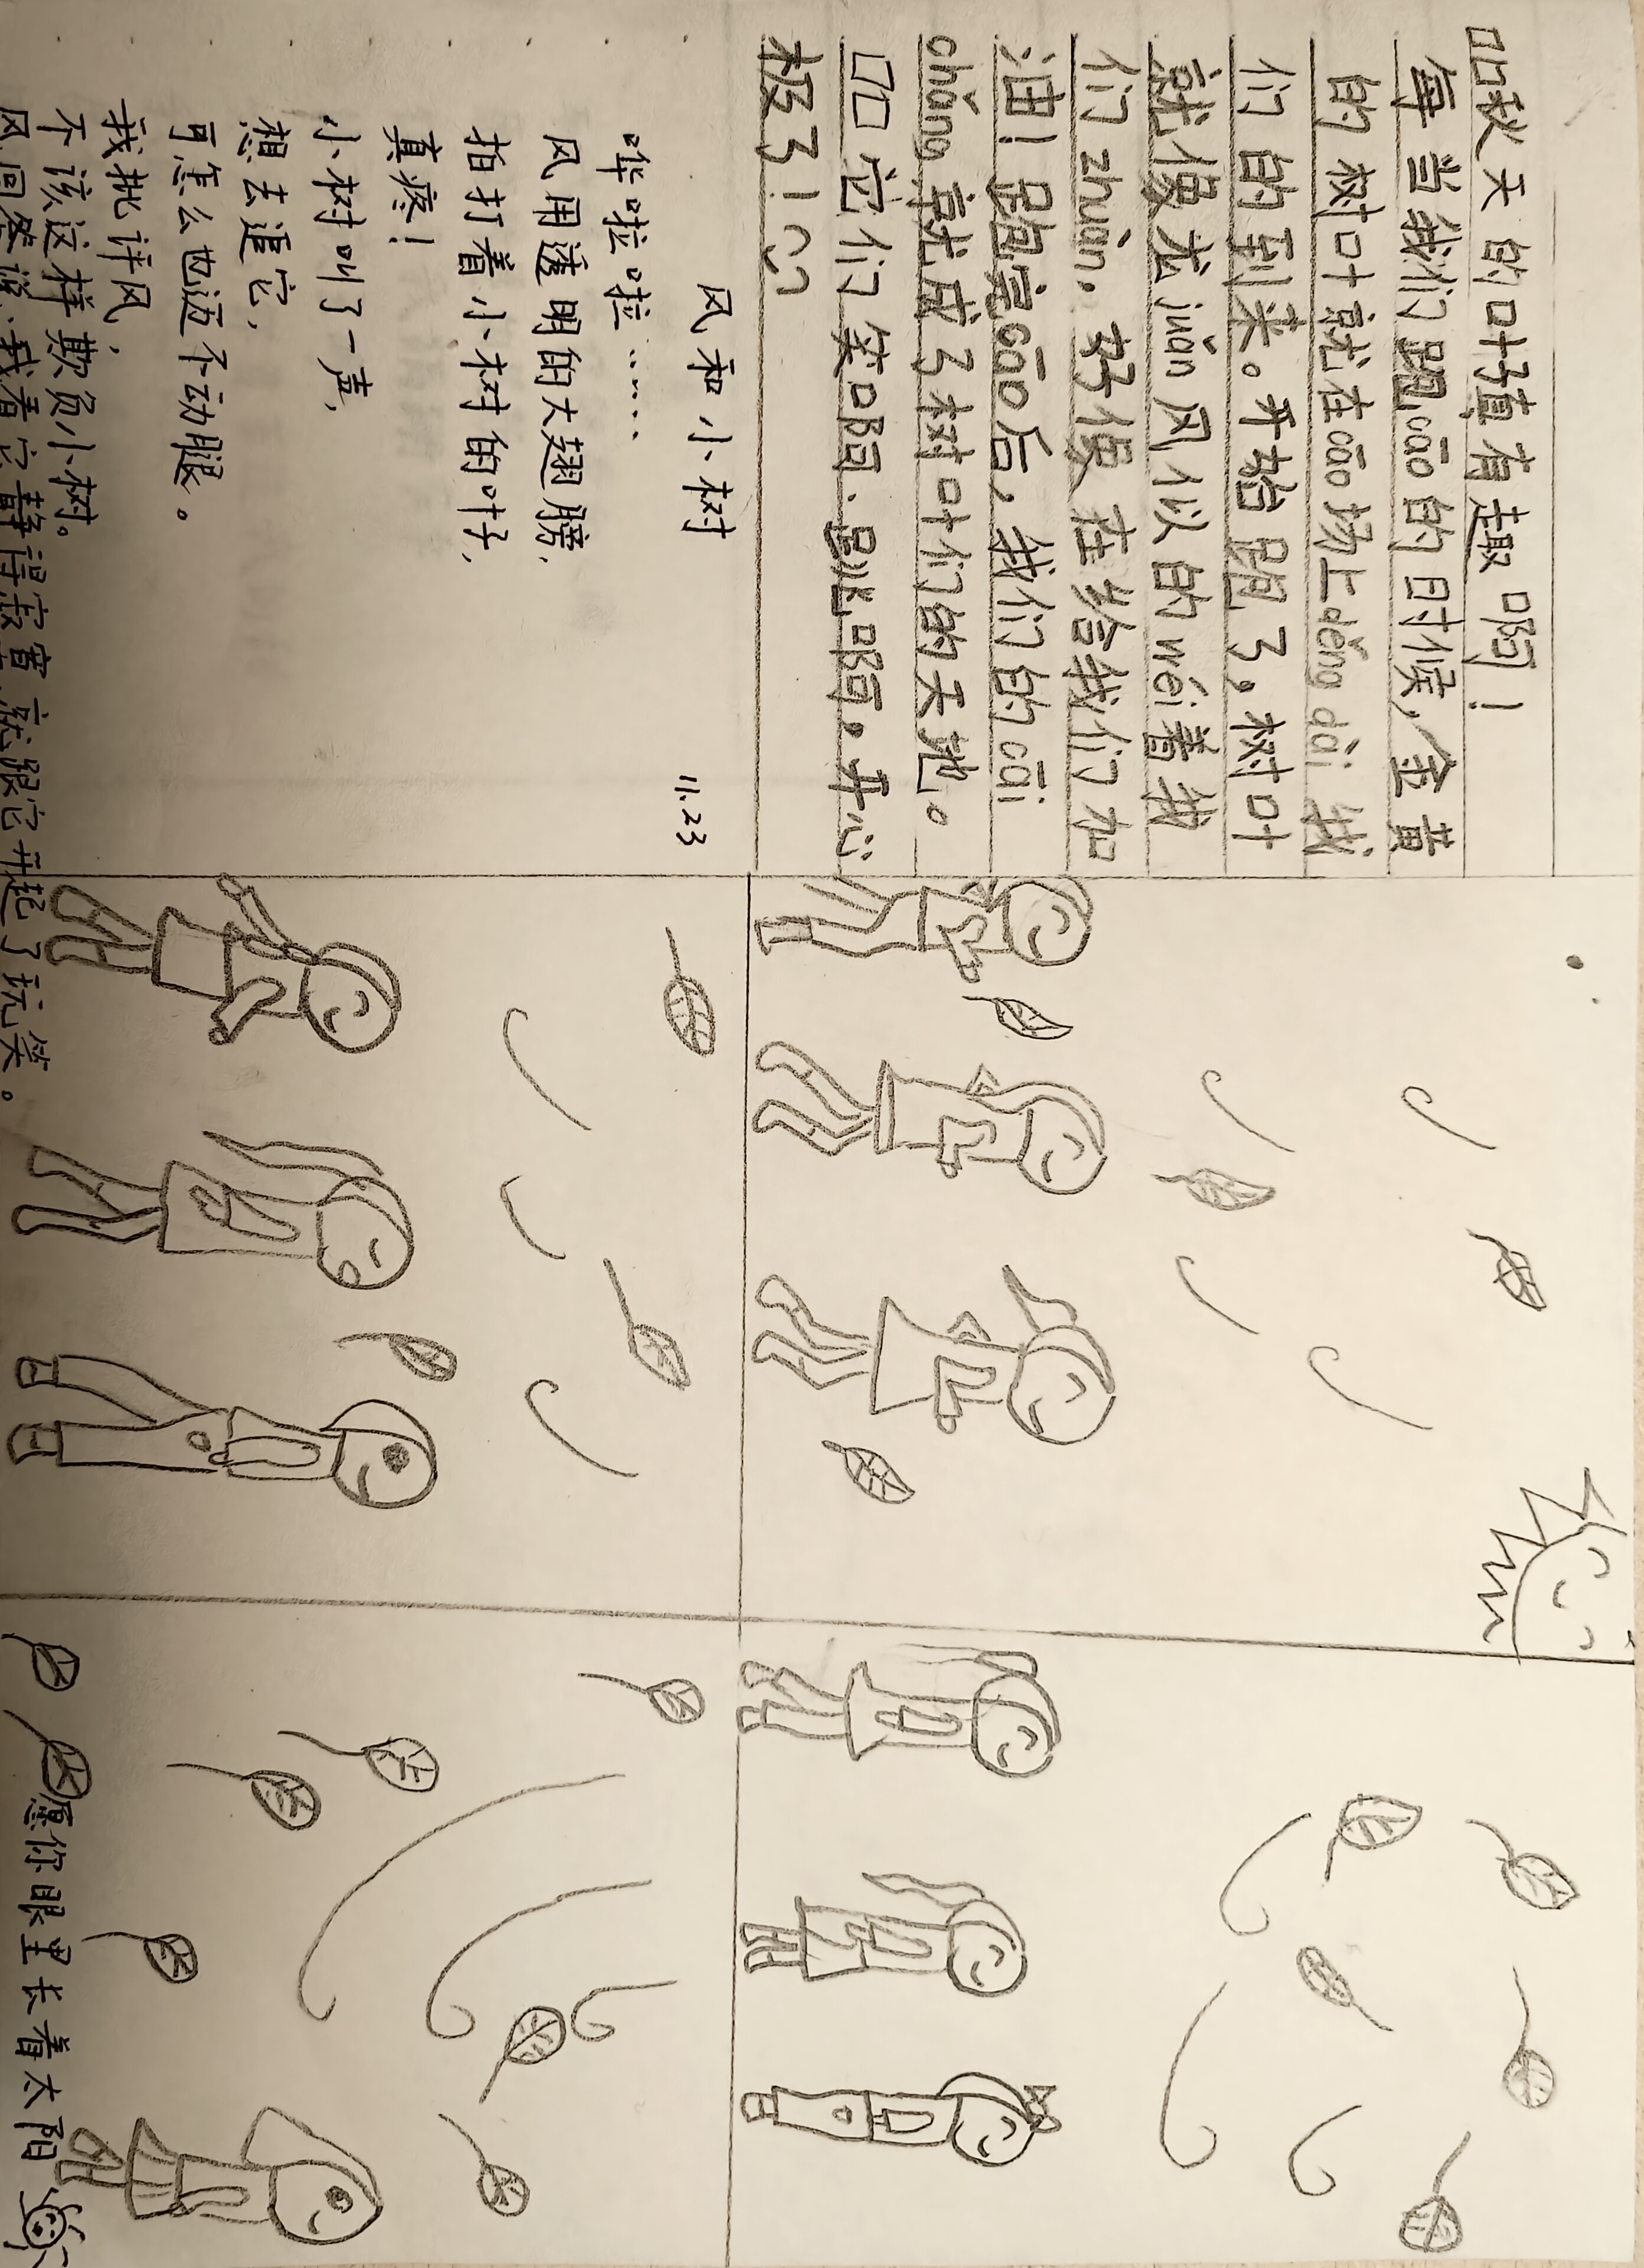 秋天的叶子真有趣啊！
每当我们跑cāo的时候，金黄
的树叶就在cāo场上děng dài 我
们的到来。开始跑了，树叶
就像龙juǎn风似的wéi着我
们zhuàn，好像在给我们加
油！跑完cāo后，我们的cāo
chǎng就成了树叶们的天地。
它们笑啊，跳啊，开心
极了！
风和小树
11.23
哗啦啦……
风用透明的大翅膀，
拍打着小树的叶子，
真疼！
小树叫了一声，
想去追它，
可怎么也迈不动腿。
我批评风，
不该这样欺负小树。
风回答说：我看它静得寂寞，就跟它开起了玩笑。
愿你眼里长着太阳